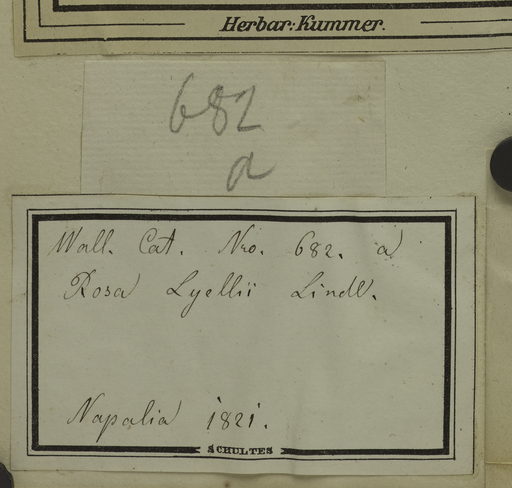 Herbar: Kummer.
682
a
Wall. Cat. Nro. 682. a
Rosa Lyellii Lindl.
Napalia 1821.
SCHULTES